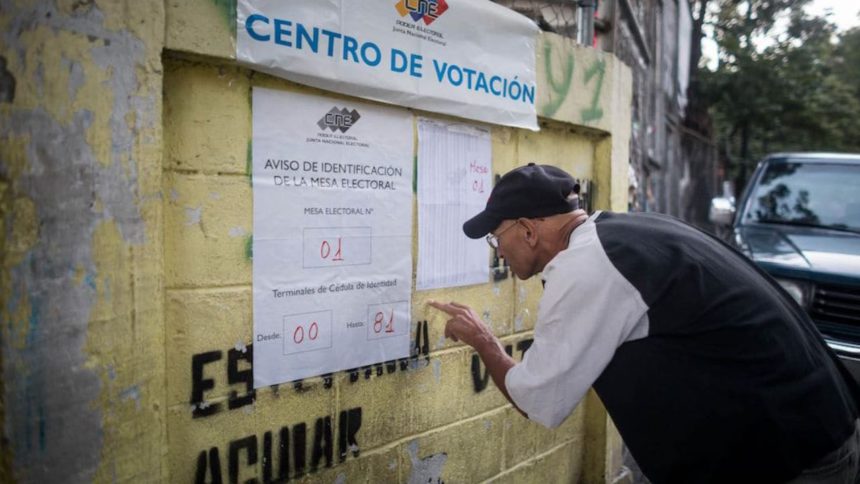 CNE
PODER ELECTORAL
Junta Nacional Electoral
CENTRO DE VOTACIÓN
CNE
PODER ELECTORAL
JUNTA NACIONAL ELECTORAL
AVISO DE IDENTIFICACIÓN
DE LA MESA ELECTORAL
MESA ELECTORAL N°
01
Terminales de Cédula de Identidad
Desde: 00 Hasta: 81
Mesa
01
AGUIAR